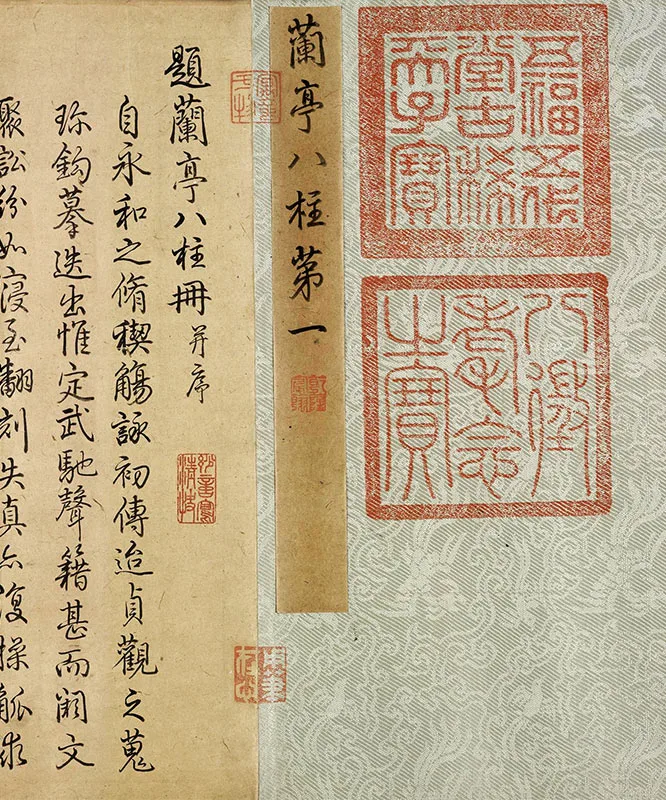 五福五代
堂古稀
天子寶
八徵
耄念
之寶
蘭亭八柱苐一
乾隆
宸翰
題蘭亭八柱冊 并序
妙意寫
清快
自永和之脩禊觴詠初傳迨貞觀之蒐
珎鈎摹迭出惟定武馳聲籍甚而闕文
聚訟紛如寖至翻刻失真亦復操觚